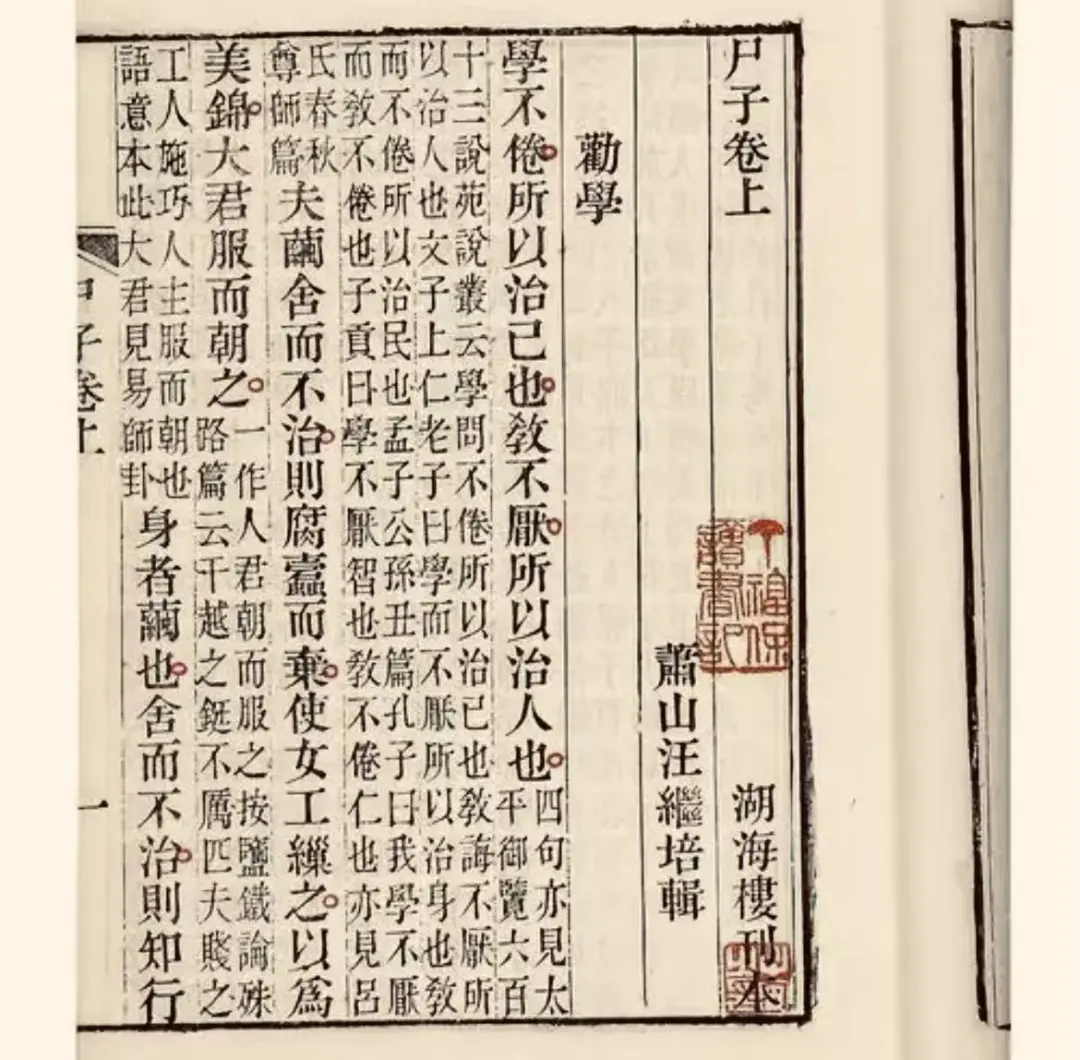 尸子卷上 湖海樓刊本
丁福保
讀書記
蕭山汪繼培輯
勸學
學不倦所以治己也敎不厭所以治人也四句亦見太
平御覽六百
十三說苑說叢云學問不倦所以治己也敎誨不厭所
以治人也文子上仁老子曰學而不厭所以治身也敎
而不倦所以治民也孟子公孫丑篇孔子曰我學不厭
而敎不倦也子貢曰學不厭智也敎不倦仁也亦見呂
氏春秋
尊師篇夫繭舍而不治則腐蠹而棄使女工繅之以爲
美錦大君服而朝之一作人君朝而服之按鹽鐵論殊
路篇云干越之鋌不厲匹夫賤之
工人施巧人主服而朝也
語意本此大君見易師卦身者繭也舍而不治則知行
尸子卷上 一